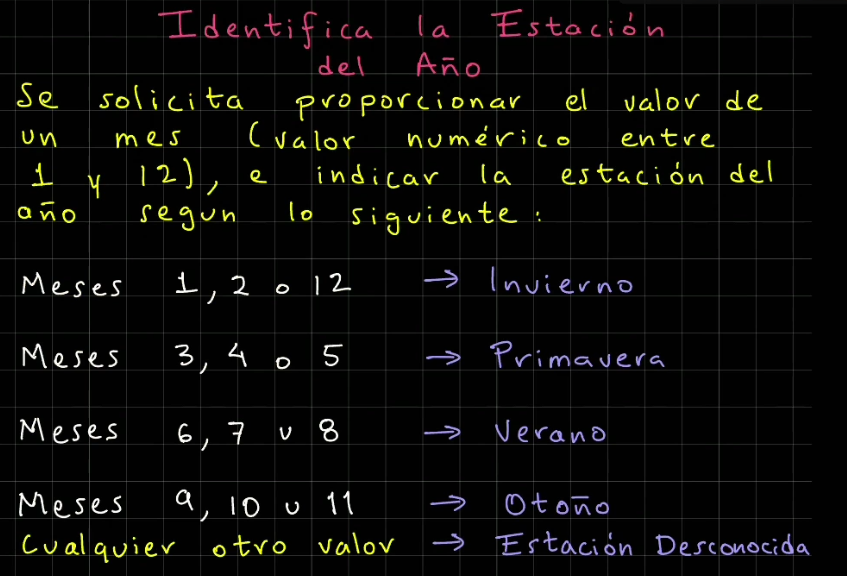 Identifica la Estación
del Año
Se solicita proporcionar el valor de
un mes (valor numérico entre
1 y 12), e indicar la estación del
año según lo siguiente:
Meses 1, 2 o 12 → Invierno
Meses 3, 4 o 5 → Primavera
Meses 6, 7 u 8 → Verano
Meses 9, 10 u 11 → Otoño
Cualquier otro valor → Estación Desconocida